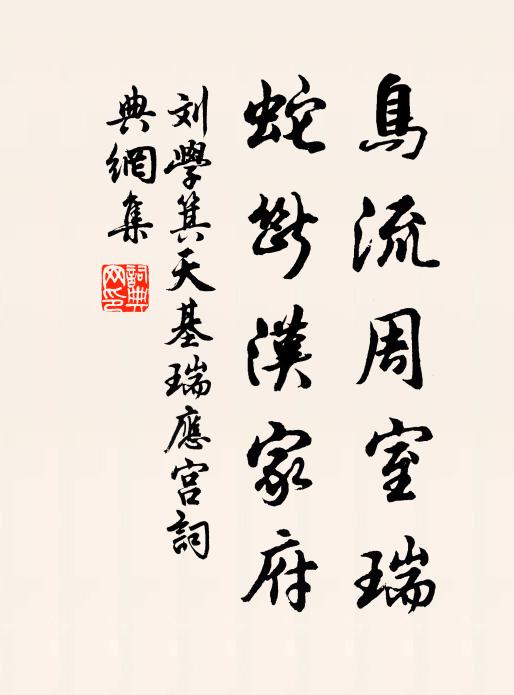 鳥流周室瑞
蛇斷漢家府
刘學箕天基瑞應宫詞
典網集
詞典網印